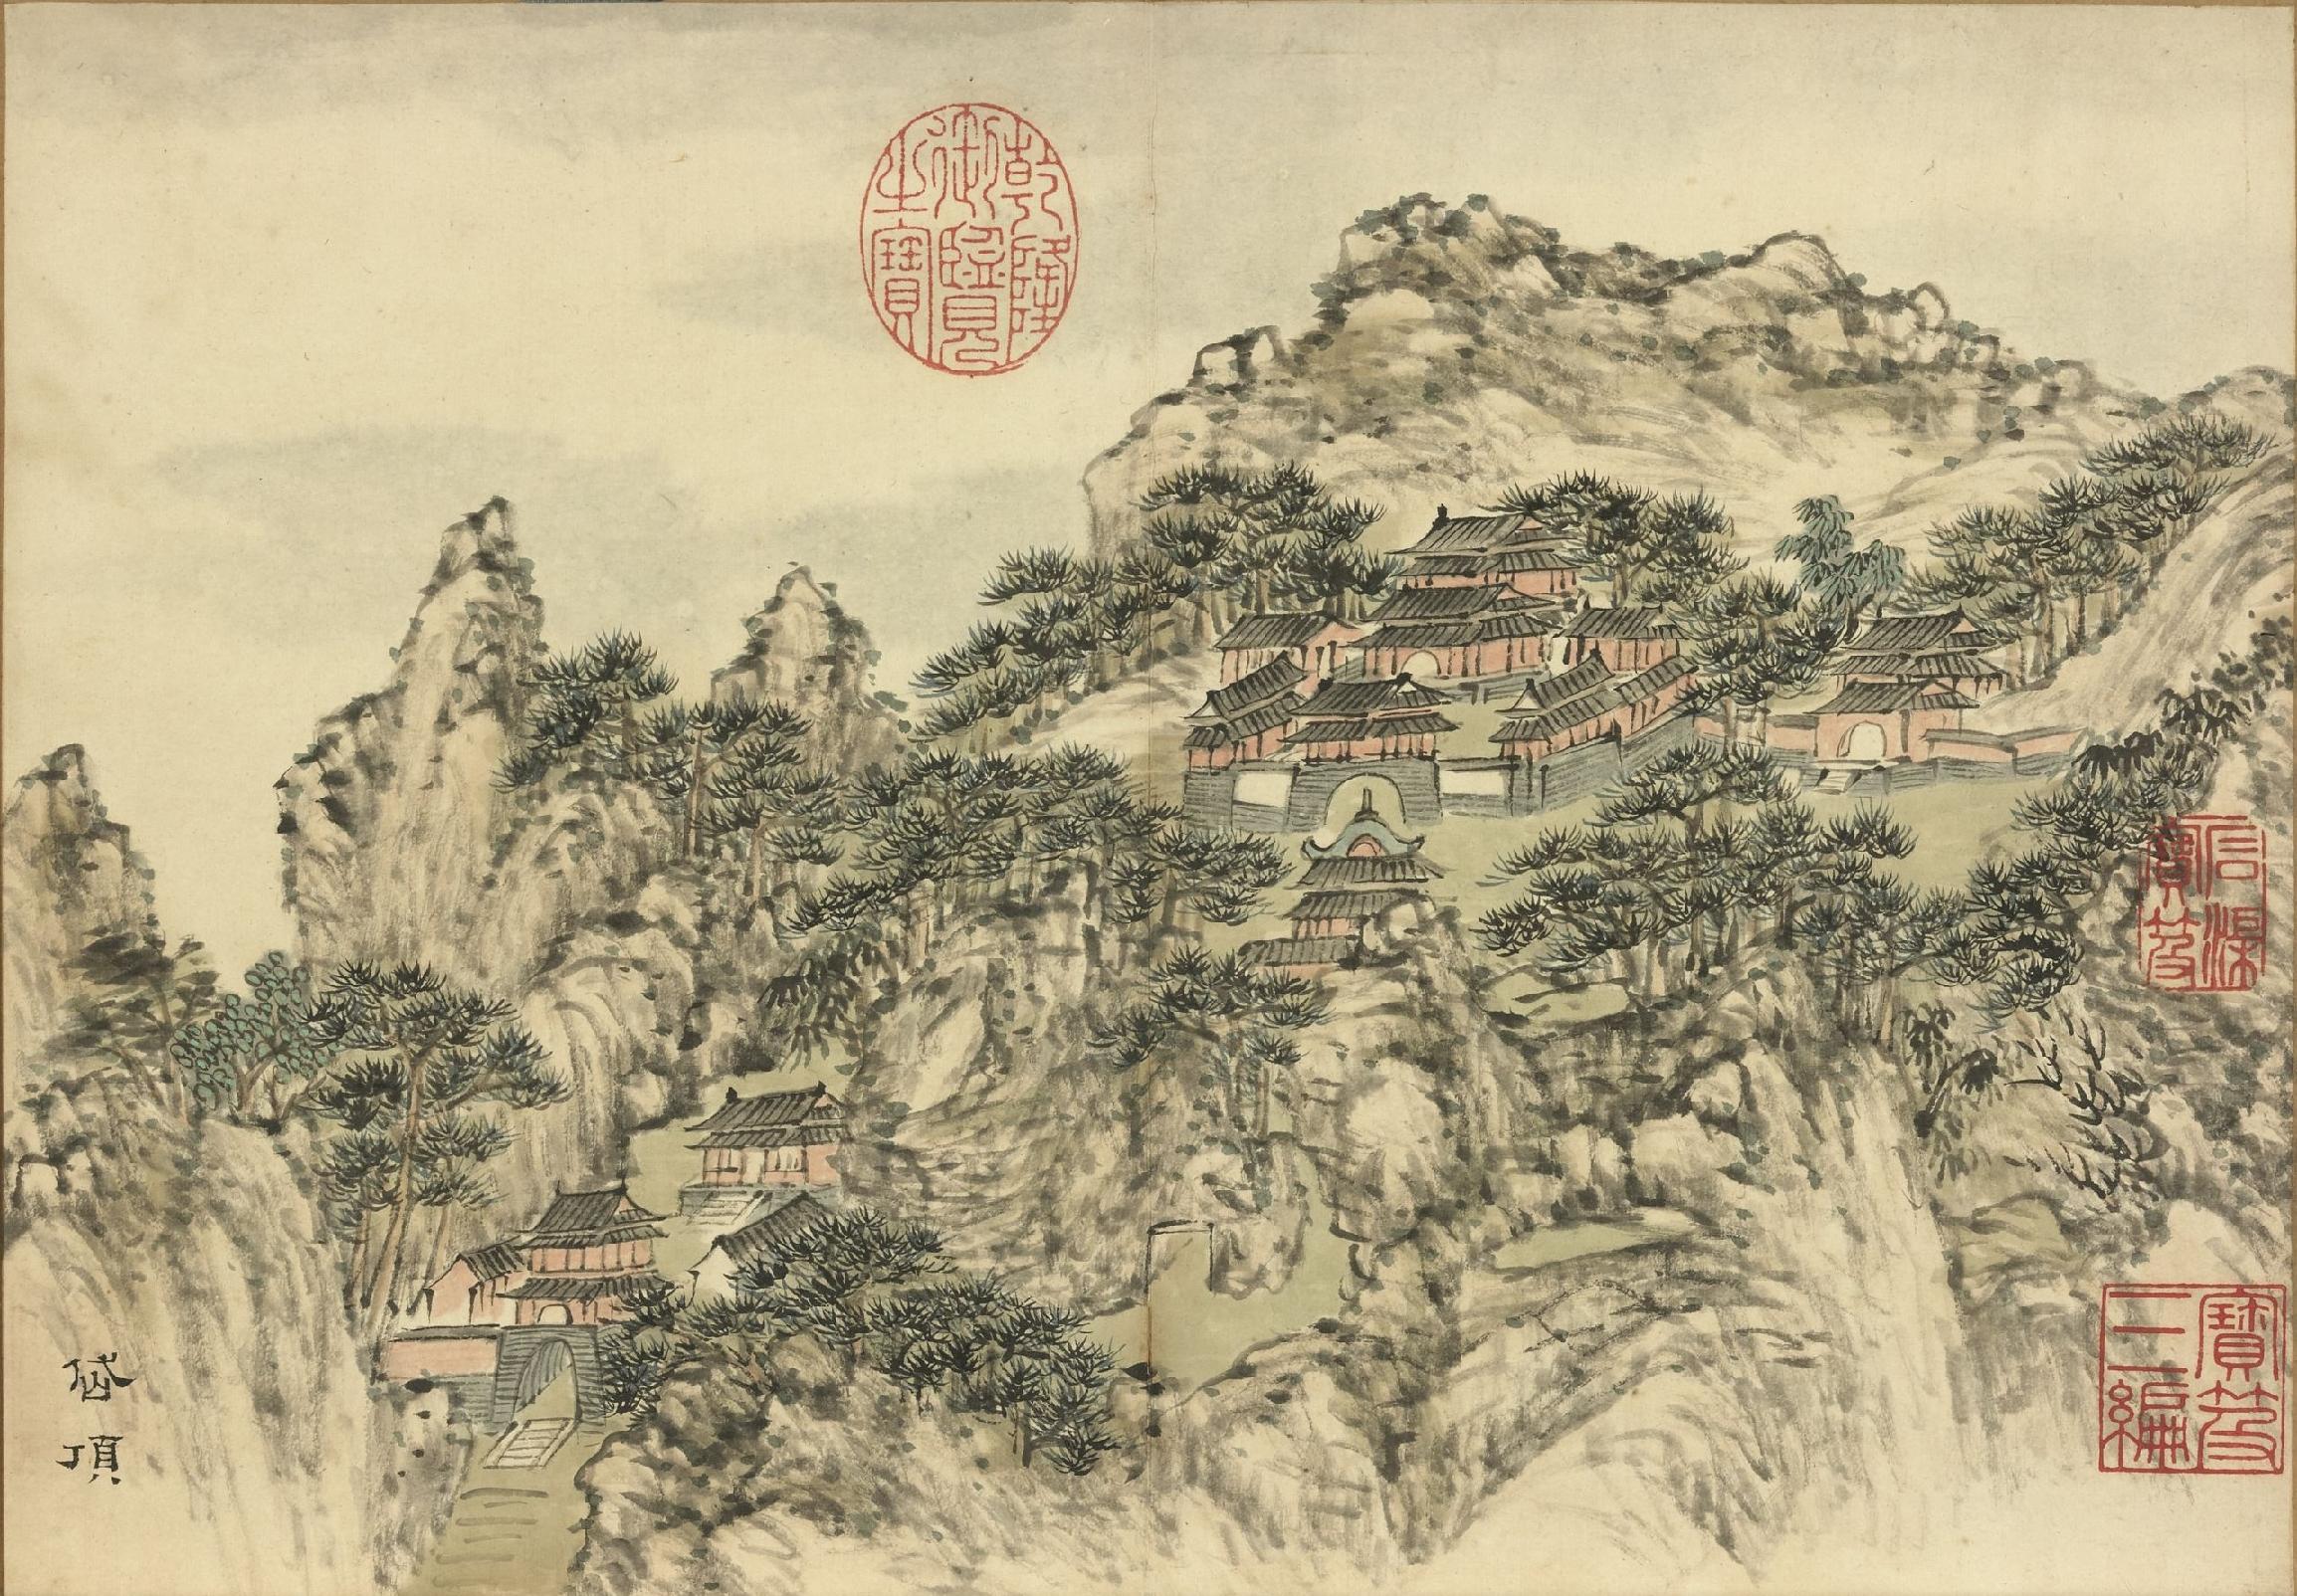 乾隆
御覽
之寶
石渠
寶笈
寶笈
三編
岱頂